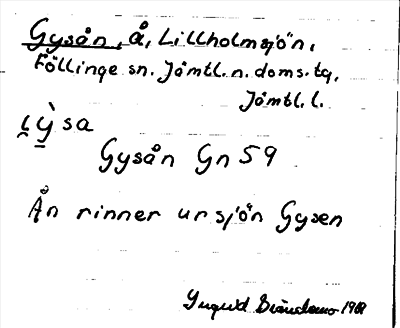 Gysån, å, Lillholmsjön,
Föllinge sn. Jämtl. n. doms. tg,
Jämtl. l.
Gysån Gn 59
Ån rinner ur sjön Gysen
1969